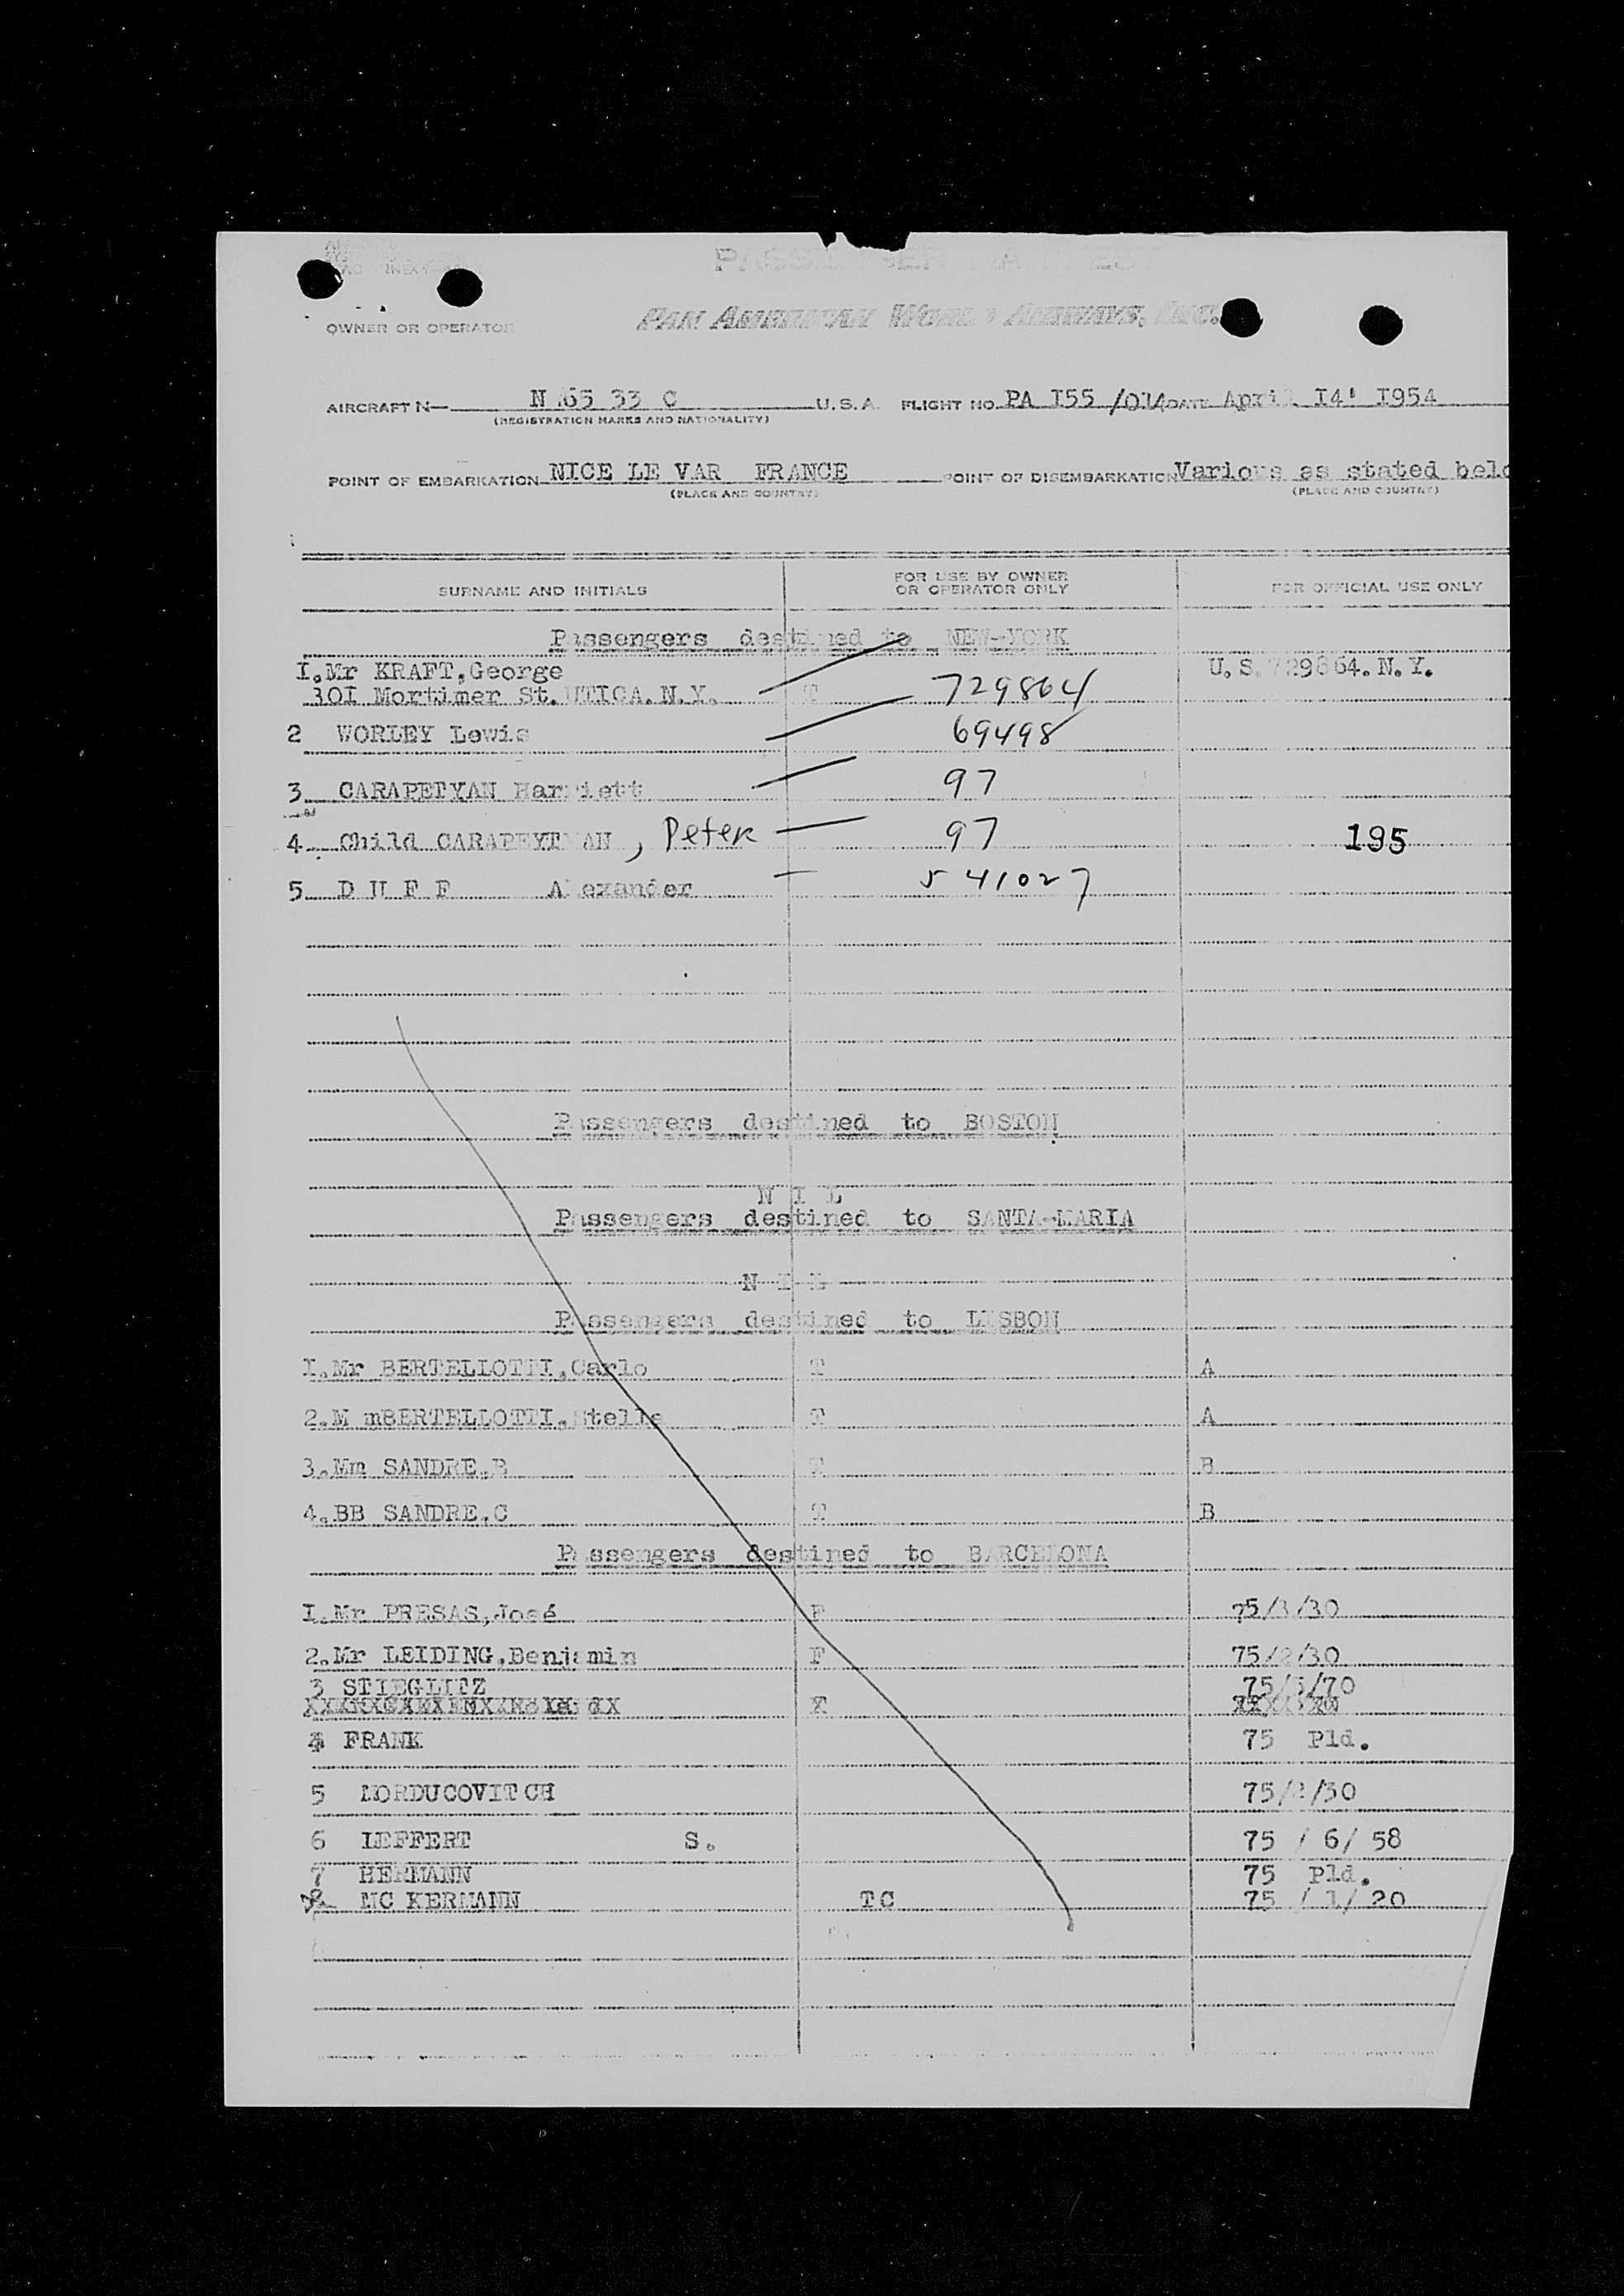 OWNER OR OPERATOR
PAN AMERICAN WORLD AIRWAYS, INC.
AIRCRAFT N— N 65 33 C U.S.A. FLIGHT NO. PA I55 /014 DATE April I4' I954
(REGISTRATION MARKS AND NATIONALITY)
POINT OF EMBARKATION NICE LE VAR FRANCE POINT OF DISEMBARKATION Various as stated belo
(PLACE AND COUNTRY) (PLACE AND COUNTRY)
SURNAME AND INITIALS FOR USE BY OWNER OR OPERATOR ONLY FOR OFFICIAL USE ONLY
Passengers destined to NEW-YORK
I.Mr KRAFT,George U.S.729864.N.Y.
30I Mortimer St.UTICA.N.Y. T 729864
2 WORLEY Lewis 69498
3 CARAPETYAN Harriett 97
4 Child CARAPEYTYAN , Peter 97 195
5 D U F F Alexander 541027
Passengers destined to BOSTON
N I L
Passengers destined to SANTA-MARIA
N I L
Passengers destined to LISBON
I.Mr BERTELLOTTI,Carlo T A
2.M mBERTELLOTTI.Stella T A
3.Mm SANDRE.B T B
4.BB SANDRE.C T B
Passengers destined to BARCELONA
I.Mr PRESAS,José F 75/3/30
2.Mr LEIDING.Benjamin F 75/2/30
3 STIEGLITZ 75/ /70
4 FRANK 75 Pld.
5 MORDUCOVITCH 75/2/30
6 LEFFERT S. 75 / 6/ 58
7 HERMANN 75 Pld.
8 MC KERMANN TC 75 / 1/ 20